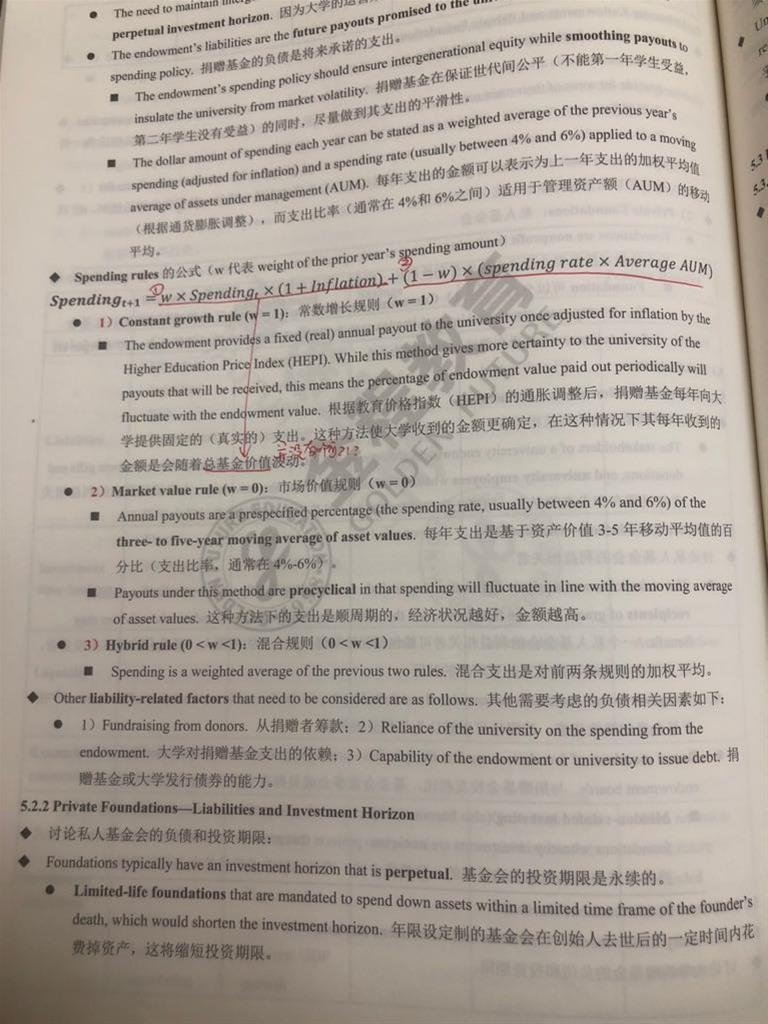 The need to maintain
perpetual investment horizon. 因为大学的运营
The endowment's liabilities are the future payouts promised to the
spending policy. 捐赠基金的负债是将来承诺的支出。
The endowment's spending policy should ensure intergenerational equity while smoothing payouts to
insulate the university from market volatility. 捐赠基金在保证世代间公平（不能第一年学生受益，
第二年学生没有受益）的同时，尽量做到其支出的平滑性。
The dollar amount of spending each year can be stated as a weighted average of the previous year's
spending (adjusted for inflation) and a spending rate (usually between 4% and 6%) applied to a moving
average of assets under management (AUM). 每年支出的金额可以表示为上一年支出的加权平均值
（根据通货膨胀调整），而支出比率（通常在 4%和 6%之间）适用于管理资产额（AUM）的移动
平均。
Spending rules 的公式（w 代表 weight of the prior year's spending amount）
① ②
Spending_{t+1} = w × Spending_t × (1 + Inflation) + (1 − w) × (spending rate × Average AUM)
1）Constant growth rule (w = 1)：常数增长规则（w = 1）
The endowment provides a fixed (real) annual payout to the university once adjusted for inflation by the
Higher Education Price Index (HEPI). While this method gives more certainty to the university of the
payouts that will be received, this means the percentage of endowment value paid out periodically will
fluctuate with the endowment value. 根据教育价格指数（HEPI）的通胀调整后，捐赠基金每年向大
学提供固定的（真实的）支出。这种方法使大学收到的金额更确定，在这种情况下其每年收到的
金额是会随着总基金价值波动。
2）Market value rule (w = 0)：市场价值规则（w = 0）
Annual payouts are a prespecified percentage (the spending rate, usually between 4% and 6%) of the
three- to five-year moving average of asset values. 每年支出是基于资产价值 3-5 年移动平均值的百
分比（支出比率，通常在 4%-6%）。
Payouts under this method are procyclical in that spending will fluctuate in line with the moving average
of asset values. 这种方法下的支出是顺周期的，经济状况越好，金额越高。
3）Hybrid rule (0 < w <1)：混合规则（0 < w <1）
Spending is a weighted average of the previous two rules. 混合支出是对前两条规则的加权平均。
Other liability-related factors that need to be considered are as follows. 其他需要考虑的负债相关因素如下：
1）Fundraising from donors. 从捐赠者筹款；2）Reliance of the university on the spending from the
endowment. 大学对捐赠基金支出的依赖；3）Capability of the endowment or university to issue debt. 捐
赠基金或大学发行债券的能力。
5.2.2 Private Foundations—Liabilities and Investment Horizon
讨论私人基金会的负债和投资期限：
Foundations typically have an investment horizon that is perpetual. 基金会的投资期限是永续的。
Limited-life foundations that are mandated to spend down assets within a limited time frame of the founder's
death, which would shorten the investment horizon. 年限设定制的基金会在创始人去世后的一定时间内花
费掉资产，这将缩短投资期限。